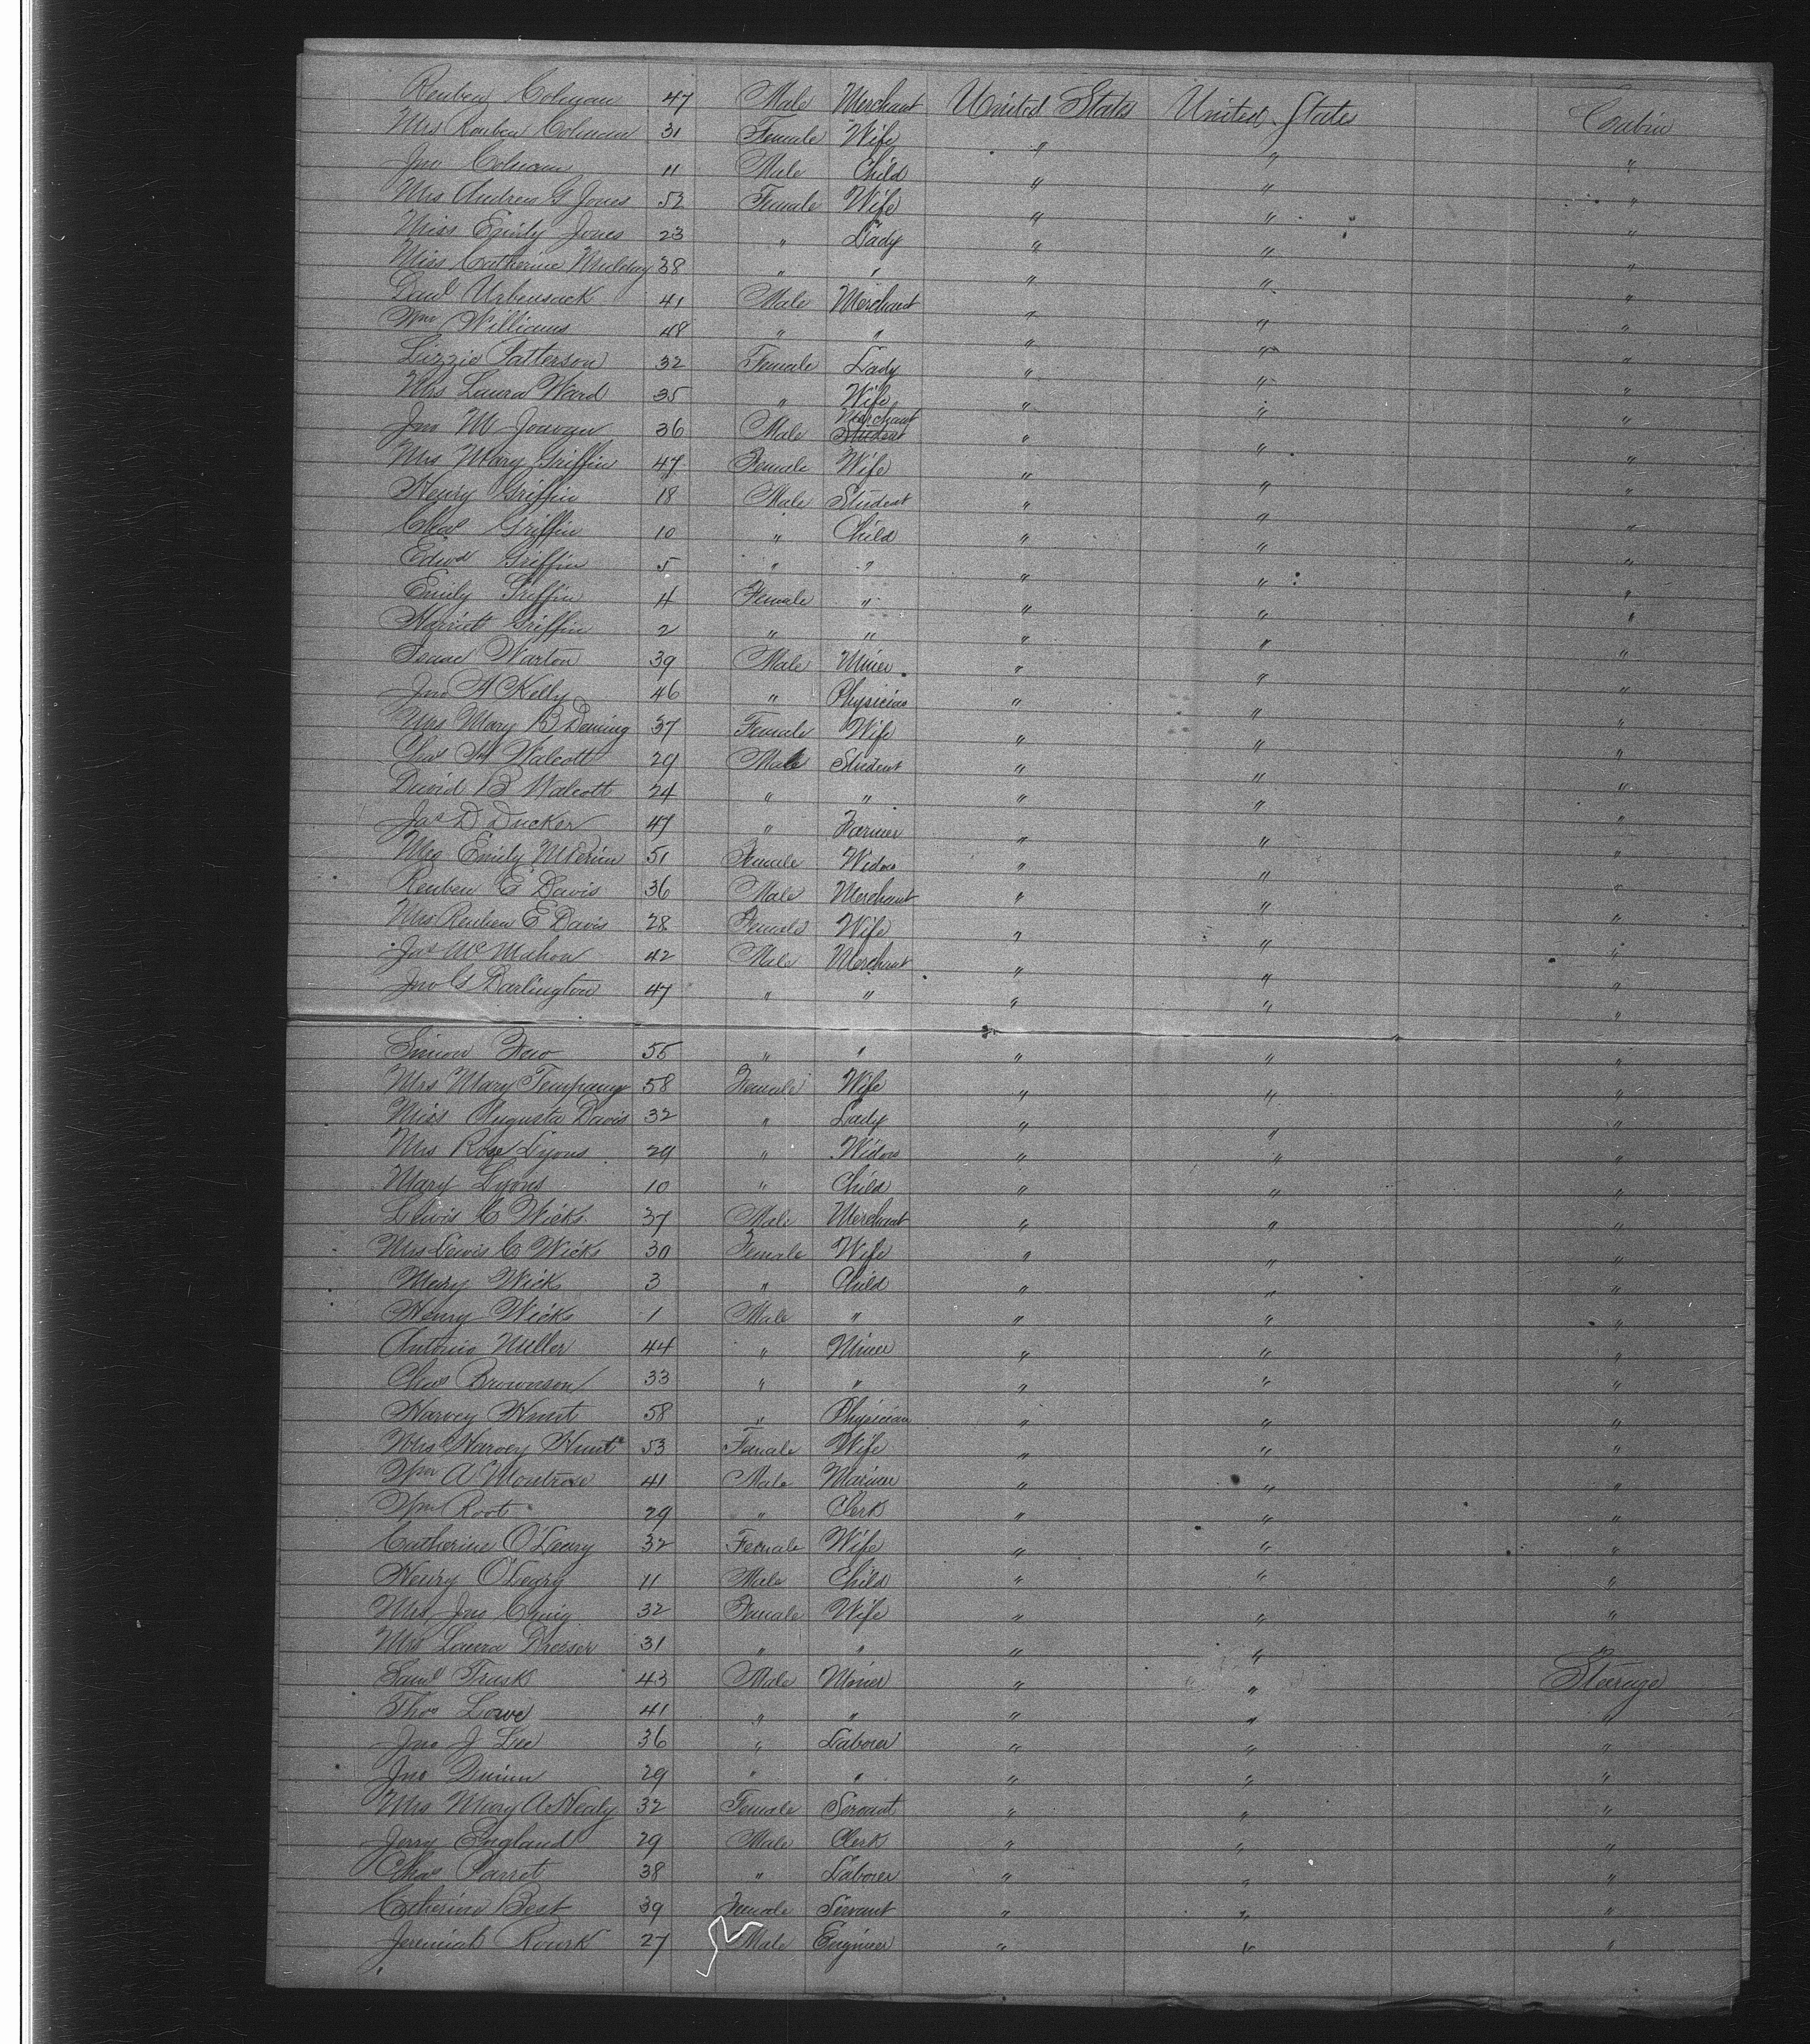 Reuben Colman 47 Male Merchant United States United States Cabin
Mrs Reuben Colman 31 Female Wife " " "
Jno Colman 11 Male Child " " "
Mrs Andrew G Jones 52 Female Wife " " "
Miss Emily Jones 23 " Lady " " "
Miss Catherine 38 " " " " "
Danl 41 Male Merchant " " "
Wm Williams 48 " " " " "
Lizzie Patterson 32 Female Lady " " "
Mrs Laura Ward 35 " Wife " " "
Jno M 36 Male Merchant Student " " "
Mrs Mary Griffin 47 Female Wife " " "
Henry Griffin 18 Male Student " " "
Chas Griffin 10 " Child " " "
Edwd Griffin 5 " " " " "
Emily Griffin 4 Female " " " "
Harriet Griffin 2 " " " " "
Isaac Warton 39 Male Miner " " "
Jno A Kelly 46 " Physician " " "
Mrs Mary B Deming 37 Female Wife " " "
Chas H Walcott 29 Male Student " " "
David B Walcott 24 " " " " "
Jas D Ducker 47 " Farmer " " "
Mrs Emily 51 Female Widow " " "
Reuben E Davis 36 Male Merchant " " "
Mrs Reuben E Davis 28 Female Wife " " "
Jas McMahon 42 Male Merchant " " "
Jno G Darlington 47 " " " " "
Simon 55 " " " " "
Mrs Mary Tempany 58 Female Wife " " "
Miss Augusta Davis 32 " Lady " " "
Mrs Rose Lyons 29 " Widow " " "
Mary Lyons 10 " Child " " "
Lewis C Wicks 37 Male Merchant " " "
Mrs Lewis C Wicks 30 Female Wife " " "
Mary Wick 3 " Child " " "
Henry Wicks 1 Male " " " "
Antonio Miller 44 " Miner " " "
Chas Brownson 33 " " " " "
Harvey Hunt 58 " Physician " " "
Mrs Harvey Hunt 53 Female Wife " " "
Wm A Montrose 41 Male Mariner " " "
Wm Root 29 " Clerk " " "
Catherine O'Leary 32 Female Wife " " "
Henry O'Leary 11 Male Child " " "
Mrs Jno Craig 32 Female Wife " " "
Mrs Laura Dresser 31 " " " " "
Saml Trask 43 Male Miner " " Steerage
Thos Lowe 41 " " " " "
Jno J Lee 36 " Laborer " " "
Jno Quinn 29 " " " " "
Mrs Mary A Healy 32 Female Servant " " "
Jerry England 29 Male Clerk " " "
Chas Parret 38 " Laborer " " "
Catherine Best 39 Female Servant " " "
Jeremiah Rourk 27 Male Engineer " " "